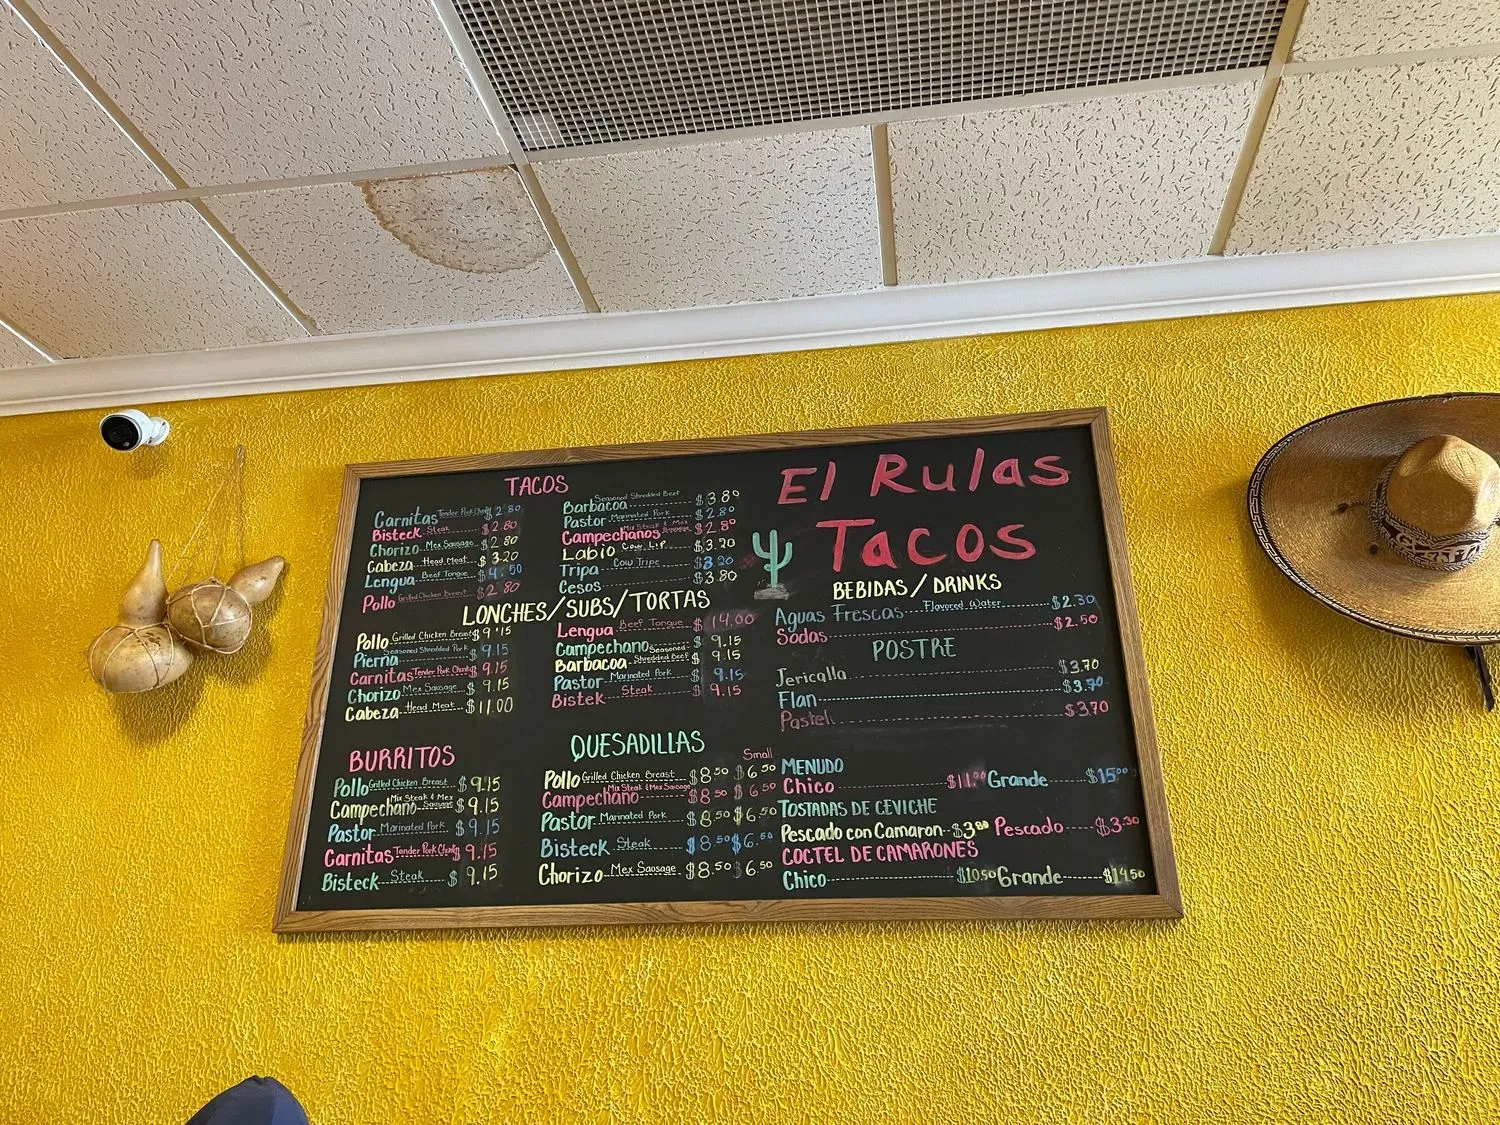 El Rulas
Tacos
TACOS
Carnitas Tender Pork Chunks $2.80
Bisteck Steak $2.80
Chorizo Mex Sausage $2.80
Cabeza Head Meat $3.20
Lengua Beef Tongue $4.50
Pollo Grilled Chicken Breast $2.80
Barbacoa Seasoned Shredded Beef $3.80
Pastor Marinated Pork $2.80
Campechanos Mix Steak & Mex $2.80
Labio Cow Lip $3.20
Tripa Cow Tripe $3.20
Cesos $3.80
LONCHES/SUBS/TORTAS
Pollo Grilled Chicken Breast $9.15
Pierna Seasoned Shredded Pork $9.15
Carnitas Tender Pork Chunks $9.15
Chorizo Mex Sausage $9.15
Cabeza Head Meat $11.00
Lengua Beef Tongue $14.00
Campechano $9.15
Barbacoa Seasoned Shredded Beef $9.15
Pastor Marinated Pork $9.15
Bistek Steak $9.15
BURRITOS
Pollo Grilled Chicken Breast $9.15
Campechano Mix Steak & Mex Sausage $9.15
Pastor Marinated Pork $9.15
Carnitas Tender Pork Chunks $9.15
Bisteck Steak $9.15
QUESADILLAS
Small
Pollo Grilled Chicken Breast $8.50 $6.50
Campechano Mix Steak & Mex Sausage $8.50 $6.50
Pastor Marinated Pork $8.50 $6.50
Bisteck Steak $8.50 $6.50
Chorizo Mex Sausage $8.50 $6.50
BEBIDAS/DRINKS
Aguas Frescas Flavored Water $2.30
Sodas $2.50
POSTRE
Jericalla $3.70
Flan $3.70
Pastel $3.70
MENUDO
Chico $11.00 Grande $15.00
TOSTADAS DE CEVICHE
Pescado con Camaron $3.80 Pescado $3.30
COCTEL DE CAMARONES
Chico $10.50 Grande $14.50